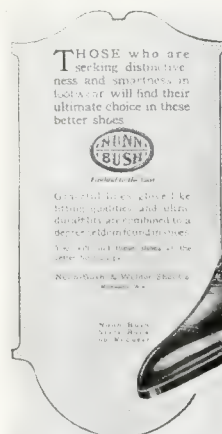 THOSE who are
seeking distinctive-
ness and smartness in
footwear will find their
ultimate choice in these
better shoes.
NUNN
BUSH
Graceful lines, glove-like
fitting qualities and ultra
durability are combined to a
degree seldom found in shoes.
You will find these shoes at the
better
Nunn-Bush & Weldon Shoe Co.
Nunn-Bush